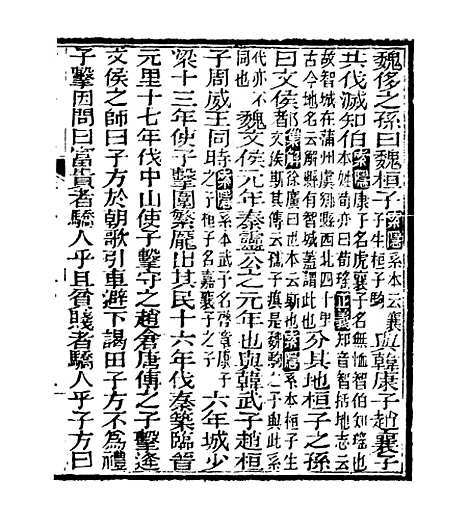 魏侈之孫曰魏桓子索隱系本云襄子生桓子駒與韓康子趙襄子
共伐滅知伯索隱康子名虎襄子名無恤智伯知瑤也本姓荀亦曰荀瑤正義知音智括地志云
故智城在蒲州虞鄉縣西北四十里古今地名云解縣有智城蓋謂此也分其地桓子之孫
曰文侯都集解徐廣曰世本云斯也索隱系本桓子生文侯斯其傳云孺子是魏駒之子與此系
代亦不同也魏文侯元年秦靈公之元年也與韓武子趙桓
子周威王同時索隱系本武子名啓章康子子桓子名嘉襄子之子六年城少
梁十三年使子擊圍繁龐出其民十六年伐秦築臨晉
元里十七年伐中山使子擊守之趙倉唐傅之子擊逢
文侯之師田子方於朝歌引車避下謁田子方不為禮
子擊因問曰富貴者驕人乎且貧賤者驕人乎子方曰